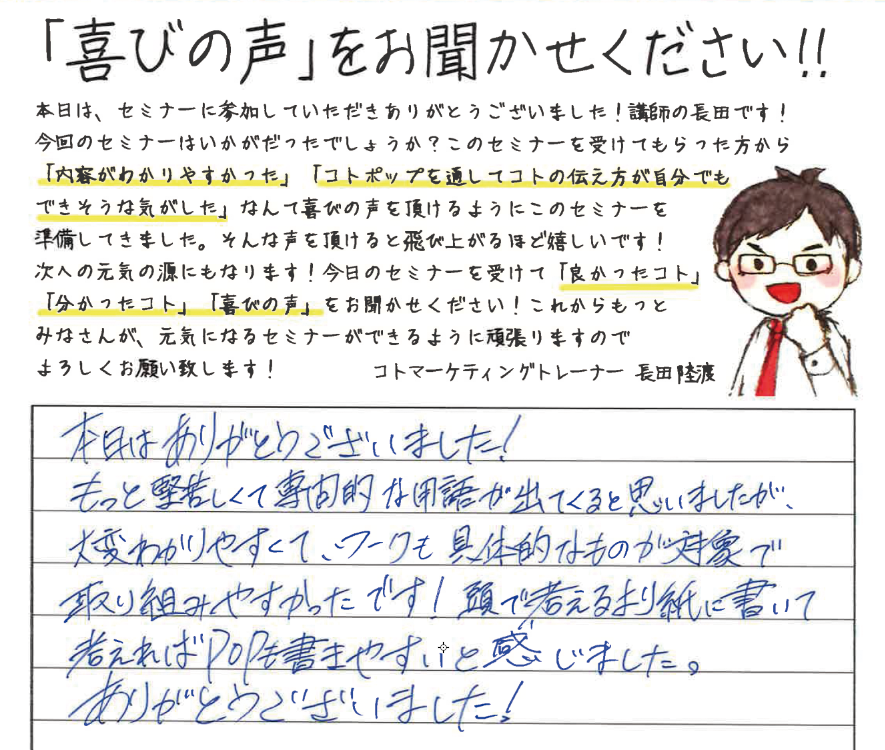 「喜びの声」をお聞かせください!!
本日は、セミナーに参加していただきありがとうございました！講師の長田です！
今回のセミナーはいかがだったでしょうか？このセミナーを受けてもらった方から
「内容がわかりやすかった」「コトポップを通してコトの伝え方が自分でも
できそうな気がした」なんて喜びの声を頂けるようにこのセミナーを
準備してきました。そんな声を頂けると飛び上がるほど嬉しいです！
次への元気の源にもなります！今日のセミナーを受けて「良かったコト」
「分かったコト」「喜びの声」をお聞かせください！これからもっと
みなさんが、元気になるセミナーができるように頑張りますので
よろしくお願い致します！
コトマーケティングトレーナー 長田陸渡
本日はありがとうございました！
もっと堅苦しくて専門的な用語が出てくると思いましたが、
大変わかりやすくて、ワークも具体的なものが対象で
取り組みやすかったです！頭で考えるより紙に書いて
考えればPOPも書きやすいと感じました。
ありがとうございました！